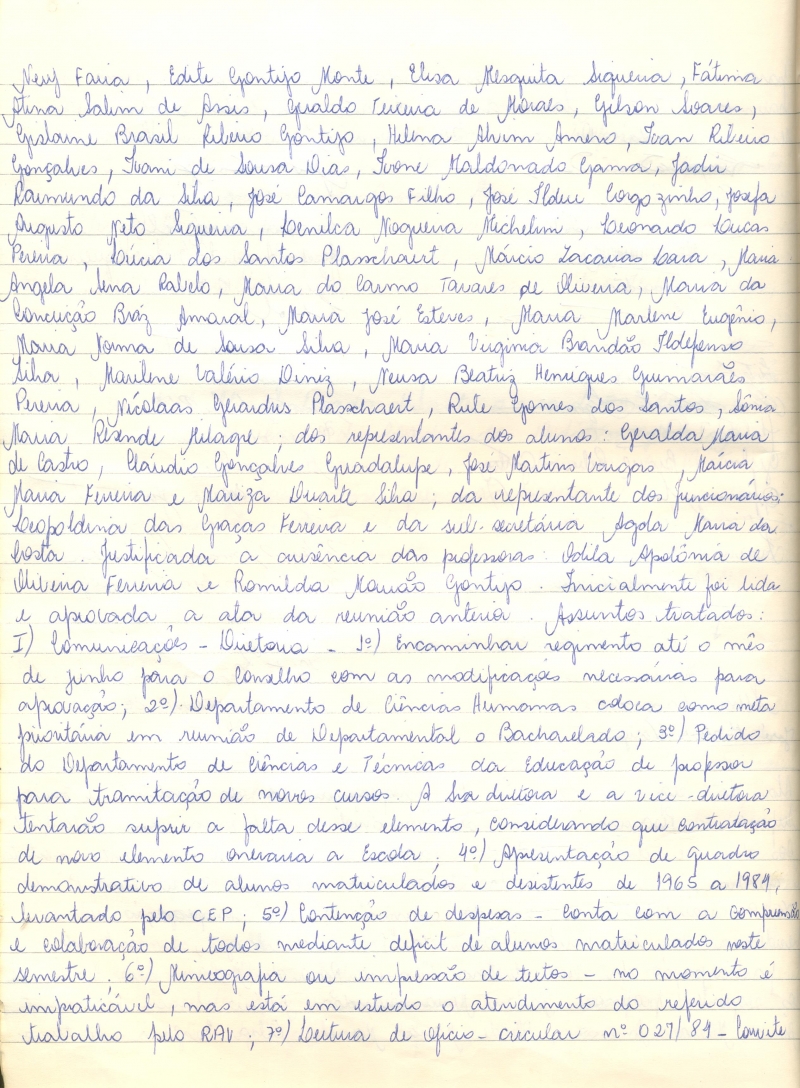 Neuf Faria, Edite Gontijo Monte, Elisa Mesquita Siqueira, Fátima
Atina Salim de Assis, Geraldo Teixeira de Moraes, Gilson Soares,
Gislaine Brasil Ribeiro Gontijo, Helena Alvim Ameno, Ivan Ribeiro
Gonçalves, Ivani de Sousa Dias, Ivone Maldonado Gama, Jadir
Raimundo da Silva, José Camargos Filho, José Ildeu Corgozinho, Josefa
Augusto Neto Siqueira, Lenilca Nogueira Michelini, Leonardo Lucas
Pereira, Lúcia dos Santos Plasschaert, Márcio Zacarias Lara, Maria
Angela Sena Rabelo, Maria do Carmo Tavares de Oliveira, Maria da
Conceição Bráz Amaral, Maria José Esteves, Maria Marlene Eugênio,
Maria Norma de Sousa Silva, Maria Virginia Brandão Ildefonso
Silva, Marilene Valério Diniz, Neusa Beatriz Henriques Guimarães
Pereira, Nicolaas Gerardus Plasschaert, Rute Gomes dos Santos, Sônia
Maria Resende Milagre; dos representantes dos alunos: Geralda Maria
de Castro, Cláudio Gonçalves Guadalupe, José Martins Vargas, Márcia
Maria Ferreira e Mariza Duarte Silva; da representante dos funcionários:
Leopoldina das Graças Ferreira e da sub-secretária Agda Maria da
Costa. Justificada a ausência das professoras: Odila Apolônia de
Oliveira Ferreira e Romilda Mourão Gontijo. Inicialmente foi lida
e aprovada a ata da reunião anterior. Assuntos tratados:
I) Comunicações - Diretoria - 1º) Encaminhar regimento até o mês
de junho para o Conselho com as modificações necessárias para
aprovação; 2º) Departamento de Ciências Humanas coloca como meta
prioritária em reunião de Departamental o Bacharelado; 3º) Pedido
do Departamento de Ciências e Técnicas da Educação de professor
para tramitação de novos cursos. A Sra diretora e a vice-diretora
tentarão suprir a falta desse elemento, considerando que contratação
de novo elemento oneraria a Escola; 4º) Apresentação de quadro
demonstrativo de alunos matriculados e desistentes de 1965 a 1984,
levantado pelo CEP; 5º) Contenção de despesas - conta com a compreensão
e colaboração de todos mediante deficit de alunos matriculados neste
semestre; 6º) Mimeografia ou impressão de textos - no momento é
impraticável, mas está em estudo o atendimento do referido
trabalho pelo RAV; 7º) Leitura de ofício-circular nº 027/84 - Convite